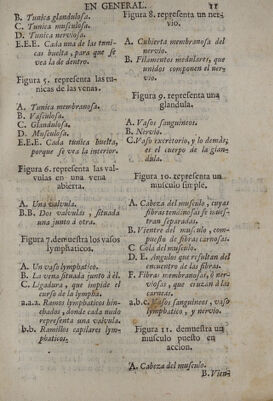 EN GENERAL. 11
B. Tunica glandulosa.
C. Tunica musculosa.
D. Tunica nerviosa.
E.E.E. Cada una de las tuni-
cas buelta, para que se
vea la de dentro.
Figura 5. representa las tu-
nicas de las venas.
A. Tunica membranosa.
B. Vasculosa.
C. Glandulosa.
D. Musculosa.
E.E.E. Cada tunica buelta,
porque se vea la interior.
Figura 6. representa las val-
vulas en una vena
abierta.
A. Una valvula.
B.B. Dos valvulas, situada
una junto à otra.
Figura 7. demuestra los vasos
lymphaticos.
A. Un vaso lymphatico.
B. La vena situada junto à èl.
C. Ligadura, que impide el
curso de la lympha.
a.a.a. Ramos lymphaticos hin-
chados, donde cada nudo
representa una valvula.
b.b. Ramillos capilares lym-
phaticos.
Figura 8. representa un ner-
vio.
A. Cubierta membranosa del
nervio.
B. Filamentos medulares, que
unidos componen el ner-
vio.
Figura 9. representa una
glandula.
A. Vasos sanguineos.
B. Nervio.
C. Vaso excretorio, y lo demàs,
es el cuerpo de la glan-
dula.
Figura 10. representa un
musculo simple.
A. Cabeza del musculo, cuyas
fibras tendinosas se mues-
tran separadas.
B. Vientre del musculo, com-
puesto de fibras carnosas.
C. Cola del musculo.
D. E. Angulos que resultan del
encuentro de las fibras.
F. Fibras membranosas, ò ner-
viosas, que cruzan à las
carneas.
a.b.c. Vasos sanguineos, vaso
lymphatico, y nervio.
Figura 11. demuestra un
musculo puesto en
accion.
A. Cabeza del musculo.
B. Vien-